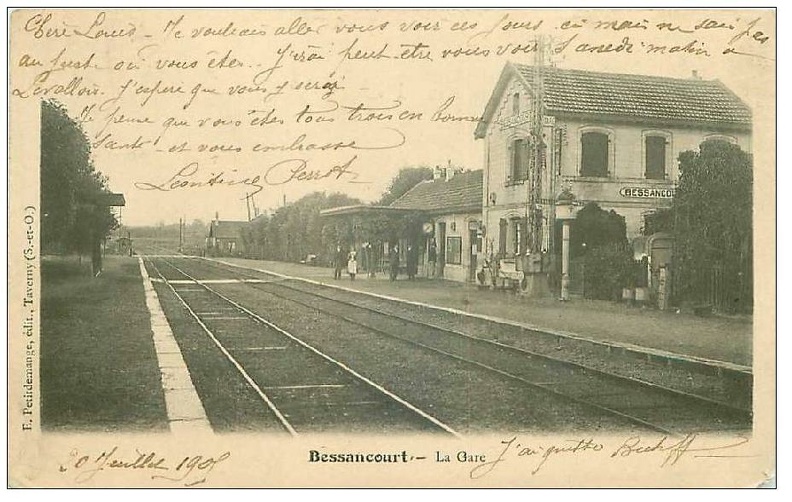 Chère Louis - Je voudrais aller vous voir ces jours ci mais ne sais pas
au juste où vous êtes. J'irai peut-être vous voir Samedi matin a
Levallois. J'espère que vous y serez
Je pense que vous êtes tous trois en bonne
santé et vous embrasse
Léontine Perrot
BESSANCOU
E. Petitdemange, édit., Taverny (S.-et-O.)
Bessancourt. - La Gare
20 Juillet 190
J'ai quitté